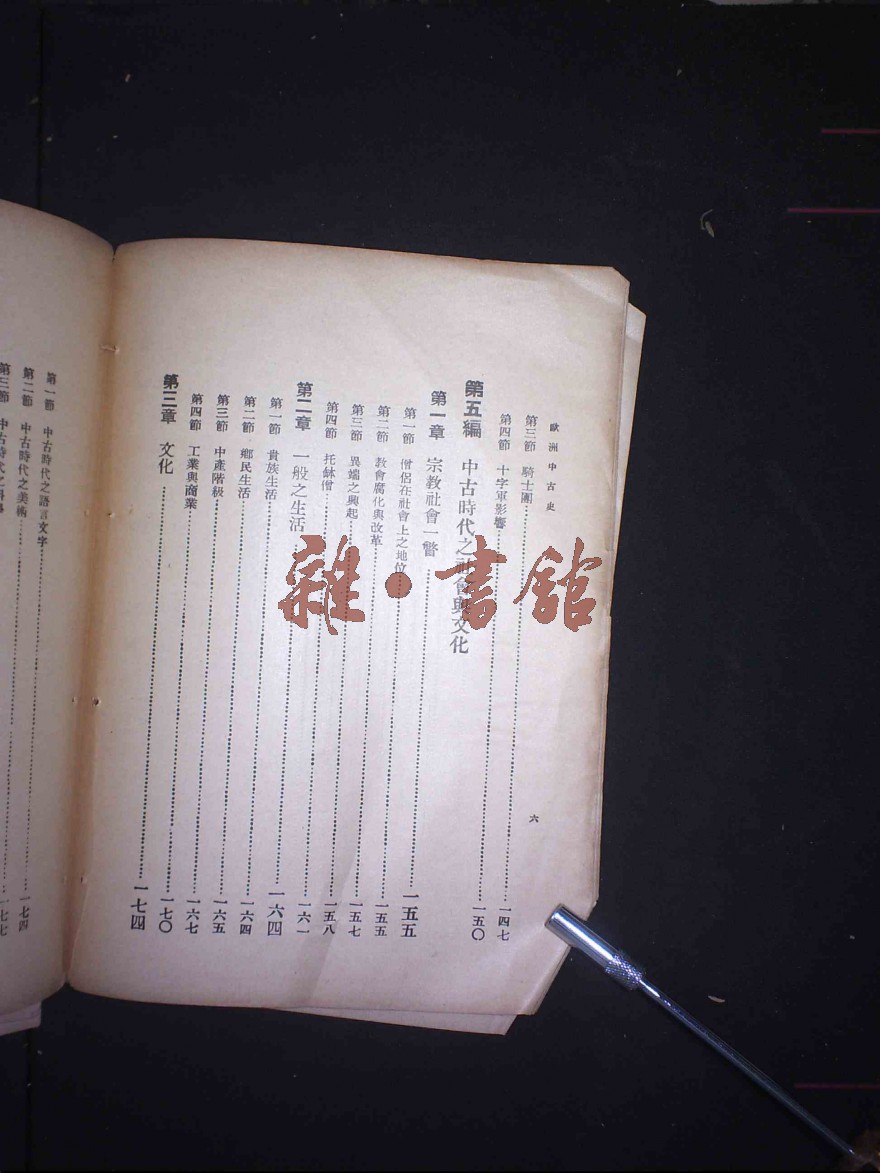 歐洲中古史
六
第三節 騎士團 一四七
第四節 十字軍影響 一五〇
第五編 中古時代之社會與文化
第一章 宗教社會一瞥 一五五
第一節 僧侶在社會上之地位 一五五
第二節 教會腐化與改革 一五七
第三節 異端之興起 一五八
第四節 托鉢僧 一六一
第二章 一般之生活 一六四
第一節 貴族生活 一六四
第二節 鄉民生活 一六五
第三節 中產階級 一六七
第四節 工業與商業 一七〇
第三章 文化 一七四
第一節 中古時代之語言文字 一七四
第二節 中古時代之美術 一七七
第三節 中古時代之
雜·書館